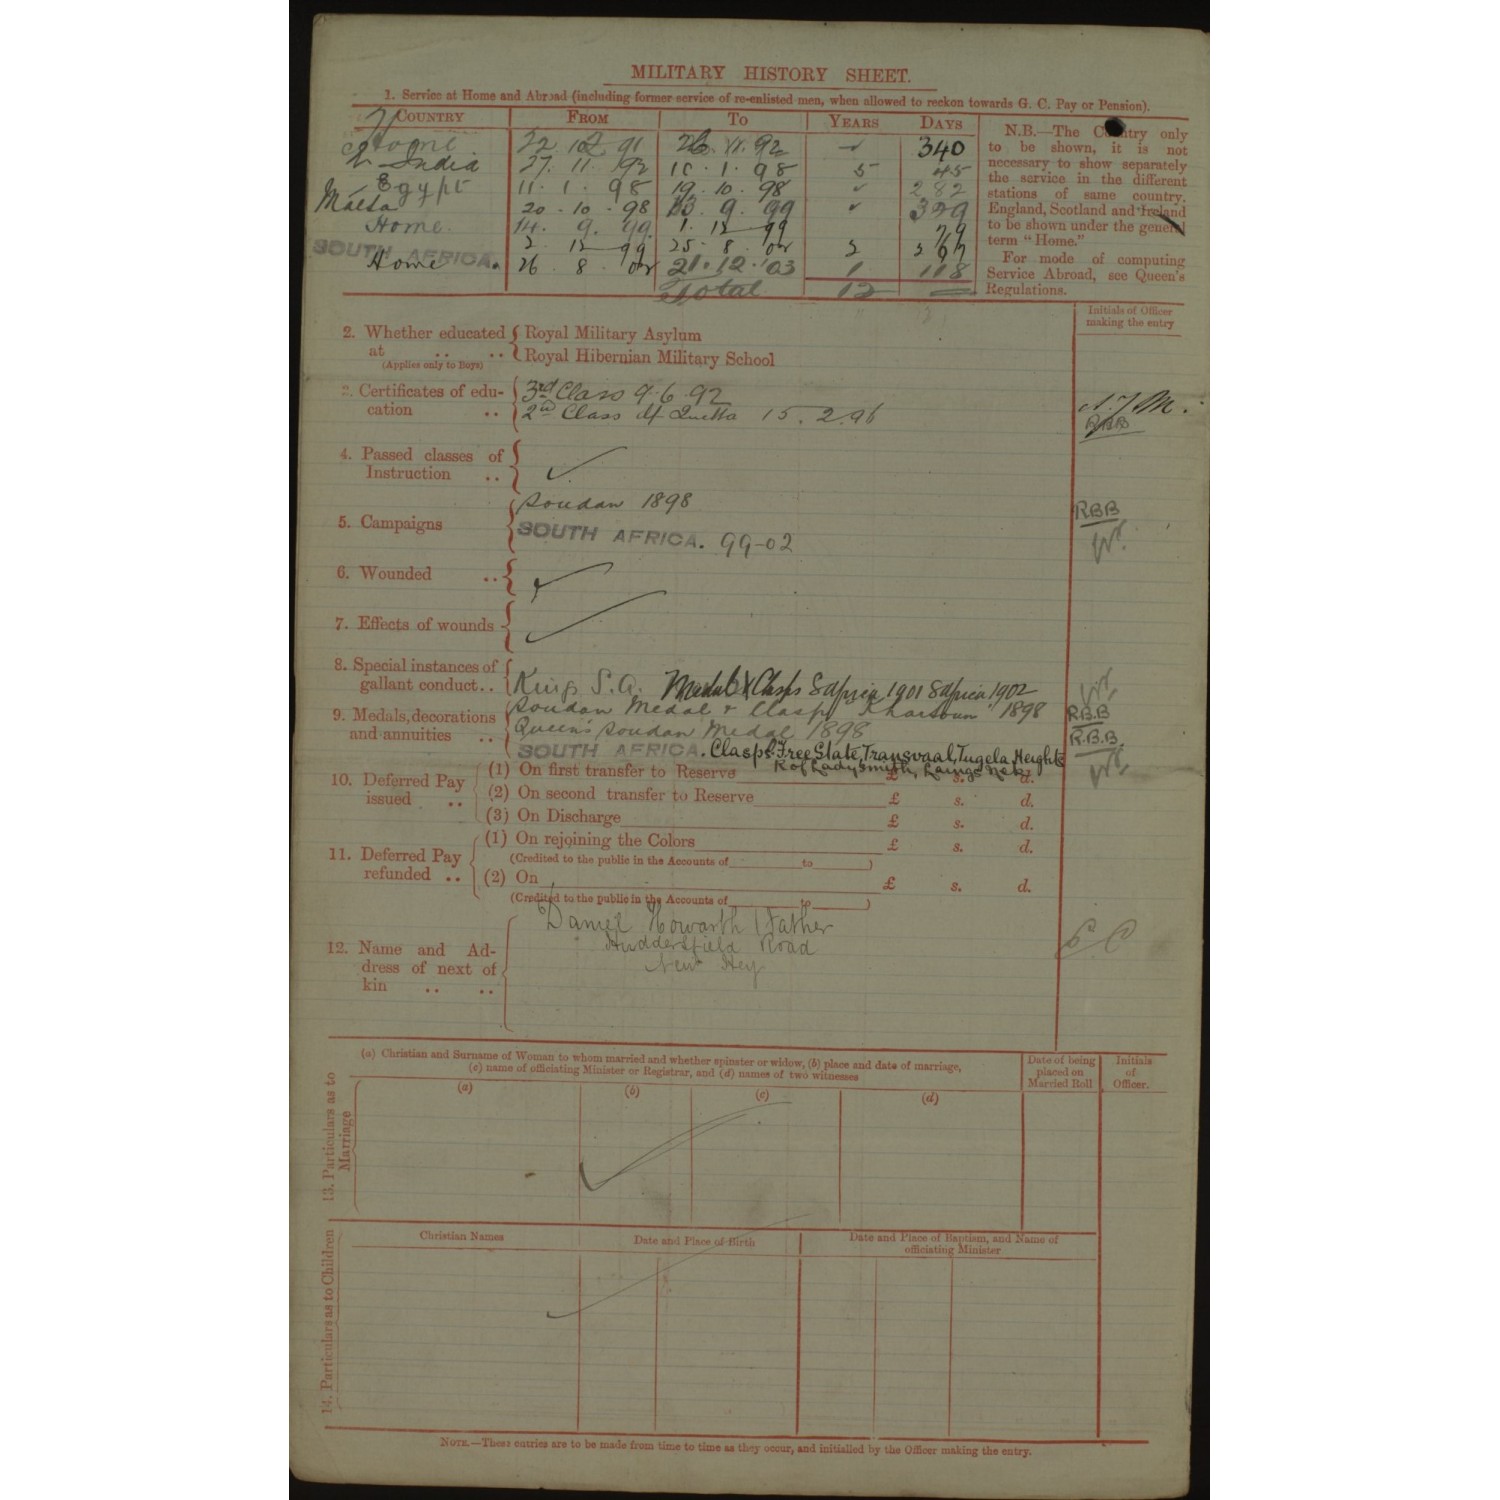 MILITARY HISTORY SHEET.
1. Service at Home and Abroad (including former service of re-enlisted men, when allowed to reckon towards G. C. Pay or Pension).
COUNTRY FROM TO YEARS DAYS
Home 22. 12 91 26. 11. 92 340
India 27. 11. 92 10. 1. 98 5 45
Egypt 11. 1. 98 19. 10. 98 282
Malta 20. 10. 98 13. 9. 99 329
Home. 14. 9. 99. 1. 12 99 79
SOUTH AFRICA. 2. 12 99 25. 8. 02 2 267
Home 26. 8. 02 21. 12. 03 1 118
Total 12
N.B.—The Country only
to be shown, it is not
necessary to show separately
the service in the different
stations of same country.
England, Scotland and Ireland
to be shown under the general
term "Home."
For mode of computing
Service Abroad, see Queen's
Regulations.
Initials of Officer
making the entry
2. Whether educated at .. .. (Applies only to Boys)
Royal Military Asylum
Royal Hibernian Military School
3. Certificates of education ..
3rd Class 9. 6. 92
2nd Class Quetta 15. 2. 96
RBB
4. Passed classes of Instruction ..
5. Campaigns
Soudan 1898 RBB
SOUTH AFRICA. 99-02
6. Wounded ..
7. Effects of wounds
8. Special instances of gallant conduct..
Kings S.A. Medal & Clasps S Africa 1901 S Africa 1902
9. Medals, decorations and annuities ..
Soudan Medal & Clasp "Khartoum" 1898 R.B.B
Queen's Soudan Medal 1898 R.B.B.
SOUTH AFRICA. Clasps. Free State, Transvaal, Tugela Heights
R of Ladysmith, Laings Nek.
10. Deferred Pay issued ..
(1) On first transfer to Reserve £ s. d.
(2) On second transfer to Reserve £ s. d.
(3) On Discharge £ s. d.
11. Deferred Pay refunded ..
(1) On rejoining the Colors £ s. d.
(Credited to the public in the Accounts of to )
(2) On £ s. d.
(Credited to the public in the Accounts of to )
12. Name and Address of next of kin .. ..
Daniel Howarth (Father
Huddersfield Road
New Hey
13. Particulars as to Marriage
(a) Christian and Surname of Woman to whom married and whether spinster or widow, (b) place and date of marriage,
(c) name of officiating Minister or Registrar, and (d) names of two witnesses
Date of being
placed on
Married Roll
Initials
of
Officer.
(a) (b) (c) (d)
14. Particulars as to Children
Christian Names Date and Place of Birth Date and Place of Baptism, and Name of
officiating Minister
NOTE.—These entries are to be made from time to time as they occur, and initialled by the Officer making the entry.